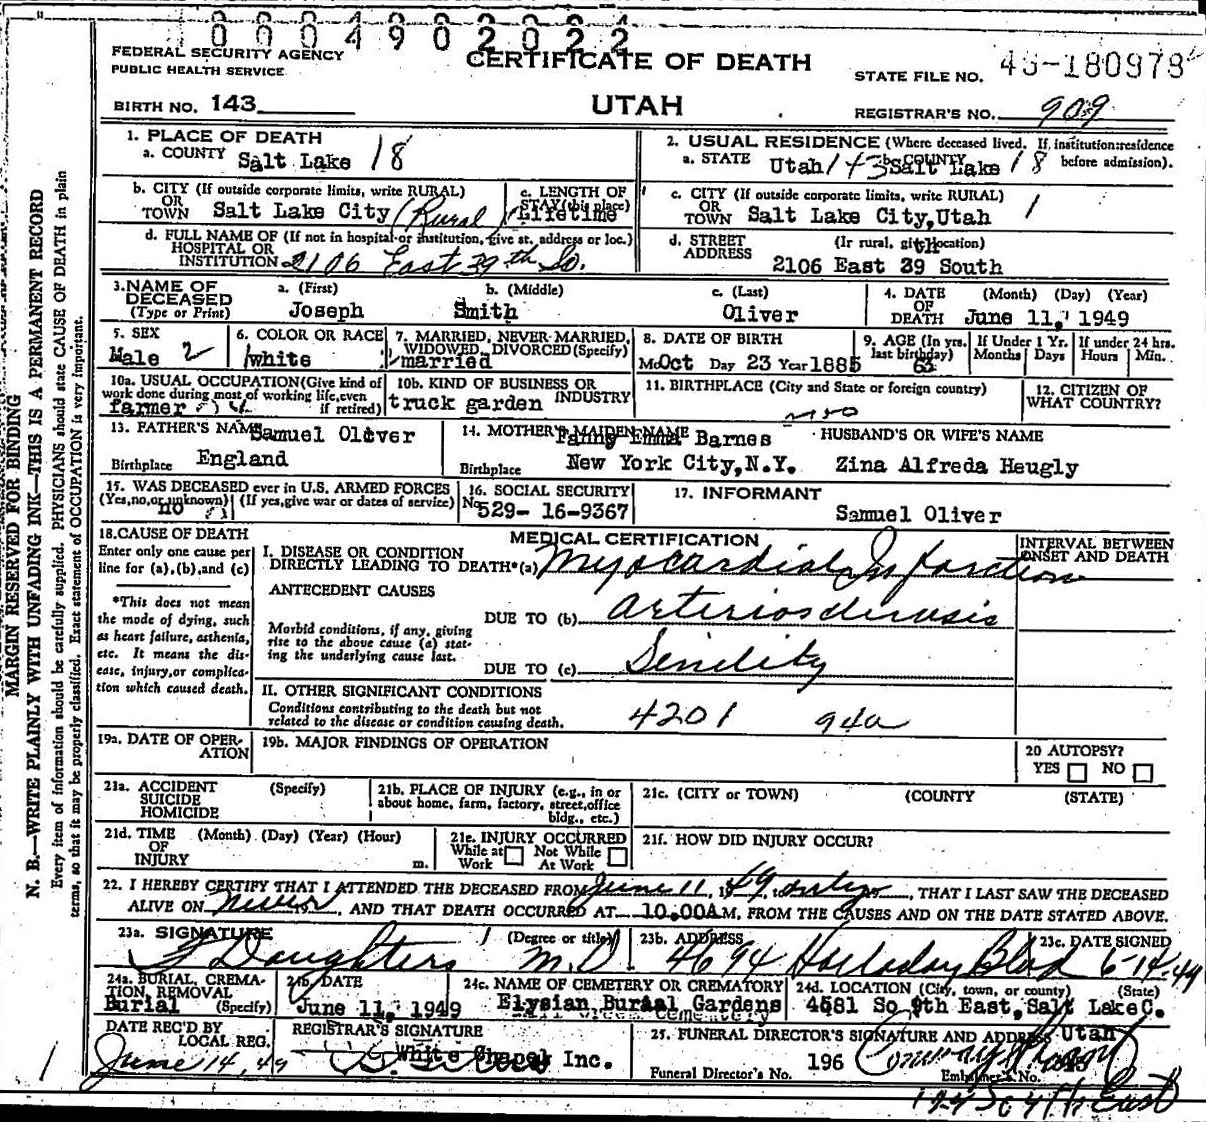 0004902022
FEDERAL SECURITY AGENCY
PUBLIC HEALTH SERVICE
CERTIFICATE OF DEATH
STATE FILE NO. 48-180978
BIRTH NO. 143
UTAH
REGISTRAR'S NO. 909
1. PLACE OF DEATH
a. COUNTY Salt Lake 18
2. USUAL RESIDENCE (Where deceased lived. If institution: residence before admission).
a. STATE Utah 143 b. COUNTY Salt Lake 18
b. CITY (If outside corporate limits, write RURAL) OR TOWN Salt Lake City (Rural)
c. LENGTH OF STAY (this place) Lifetime
c. CITY (If outside corporate limits, write RURAL) OR TOWN Salt Lake City, Utah 1
d. FULL NAME OF (If not in hospital or institution, give st. address or loc.) HOSPITAL OR INSTITUTION 2106 East 39th So.
d. STREET ADDRESS (If rural, give location) 2106 East 39 South
3. NAME OF DECEASED (Type or Print)
a. (First) Joseph
b. (Middle) Smith
c. (Last) Oliver
4. DATE OF DEATH (Month) (Day) (Year) June 11, 1949
5. SEX Male 2
6. COLOR OR RACE white
7. MARRIED, NEVER MARRIED, WIDOWED, DIVORCED (Specify) married
8. DATE OF BIRTH Mo Oct Day 23 Year 1885
9. AGE (In yrs. last birthday) 63
If Under 1 Yr. Months Days
If under 24 hrs. Hours Min.
10a. USUAL OCCUPATION (Give kind of work done during most of working life, even if retired) farmer
10b. KIND OF BUSINESS OR INDUSTRY truck garden
11. BIRTHPLACE (City and State or foreign country)
12. CITIZEN OF WHAT COUNTRY?
13. FATHER'S NAME Samuel Oliver
Birthplace England
14. MOTHER'S MAIDEN NAME Fanny Emma Barnes
Birthplace New York City, N.Y.
HUSBAND'S OR WIFE'S NAME
Zina Alfreda Heugly
15. WAS DECEASED ever in U.S. ARMED FORCES
(Yes, no, or unknown) (If yes, give war or dates of service) no
16. SOCIAL SECURITY No. 529-16-9367
17. INFORMANT
Samuel Oliver
18. CAUSE OF DEATH
Enter only one cause per line for (a), (b), and (c)
*This does not mean the mode of dying, such as heart failure, asthenia, etc. It means the disease, injury, or complication which caused death.
MEDICAL CERTIFICATION
INTERVAL BETWEEN ONSET AND DEATH
I. DISEASE OR CONDITION DIRECTLY LEADING TO DEATH* (a) Myocardial Infarction
ANTECEDENT CAUSES
Morbid conditions, if any, giving rise to the above cause (a) stating the underlying cause last.
DUE TO (b) arteriosclerosis
DUE TO (c) Senility
II. OTHER SIGNIFICANT CONDITIONS
Conditions contributing to the death but not related to the disease or condition causing death.
4201 94a
19a. DATE OF OPERATION
19b. MAJOR FINDINGS OF OPERATION
20 AUTOPSY?
YES NO
21a. ACCIDENT SUICIDE HOMICIDE (Specify)
21b. PLACE OF INJURY (e.g., in or about home, farm, factory, street, office bldg., etc.)
21c. (CITY or TOWN) (COUNTY (STATE)
21d. TIME OF INJURY (Month) (Day) (Year) (Hour) m.
21e. INJURY OCCURRED While at Work Not While At Work
21f. HOW DID INJURY OCCUR?
22. I HEREBY CERTIFY THAT I ATTENDED THE DECEASED FROM June 11, 1949, to only, THAT I LAST SAW THE DECEASED
ALIVE ON never, 19, AND THAT DEATH OCCURRED AT 10.00A M, FROM THE CAUSES AND ON THE DATE STATED ABOVE.
23a. SIGNATURE (Degree or title) Daughters M.D.
23b. ADDRESS 4694 Holladay Blvd
23c. DATE SIGNED 6-14-49
24a. BURIAL, CREMATION, REMOVAL (Specify) Burial
24b. DATE June 11, 1949
24c. NAME OF CEMETERY OR CREMATORY Elysian Burial Gardens
24d. LOCATION (City, town, or county) (State) 4581 So 9th East, Salt Lake C. Utah
DATE REC'D BY LOCAL REG. June 14, 49
REGISTRAR'S SIGNATURE
White Chapel Inc.
25. FUNERAL DIRECTOR'S SIGNATURE AND ADDRESS
Funeral Director's No. 196
Embalmer's No.
124 So 4th East
MARGIN RESERVED FOR BINDING
N. B.—WRITE PLAINLY WITH UNFADING INK—THIS IS A PERMANENT RECORD
Every item of information should be carefully supplied. PHYSICIANS should state CAUSE OF DEATH in plain
terms, so that it may be properly classified. Exact statement of OCCUPATION is very important.